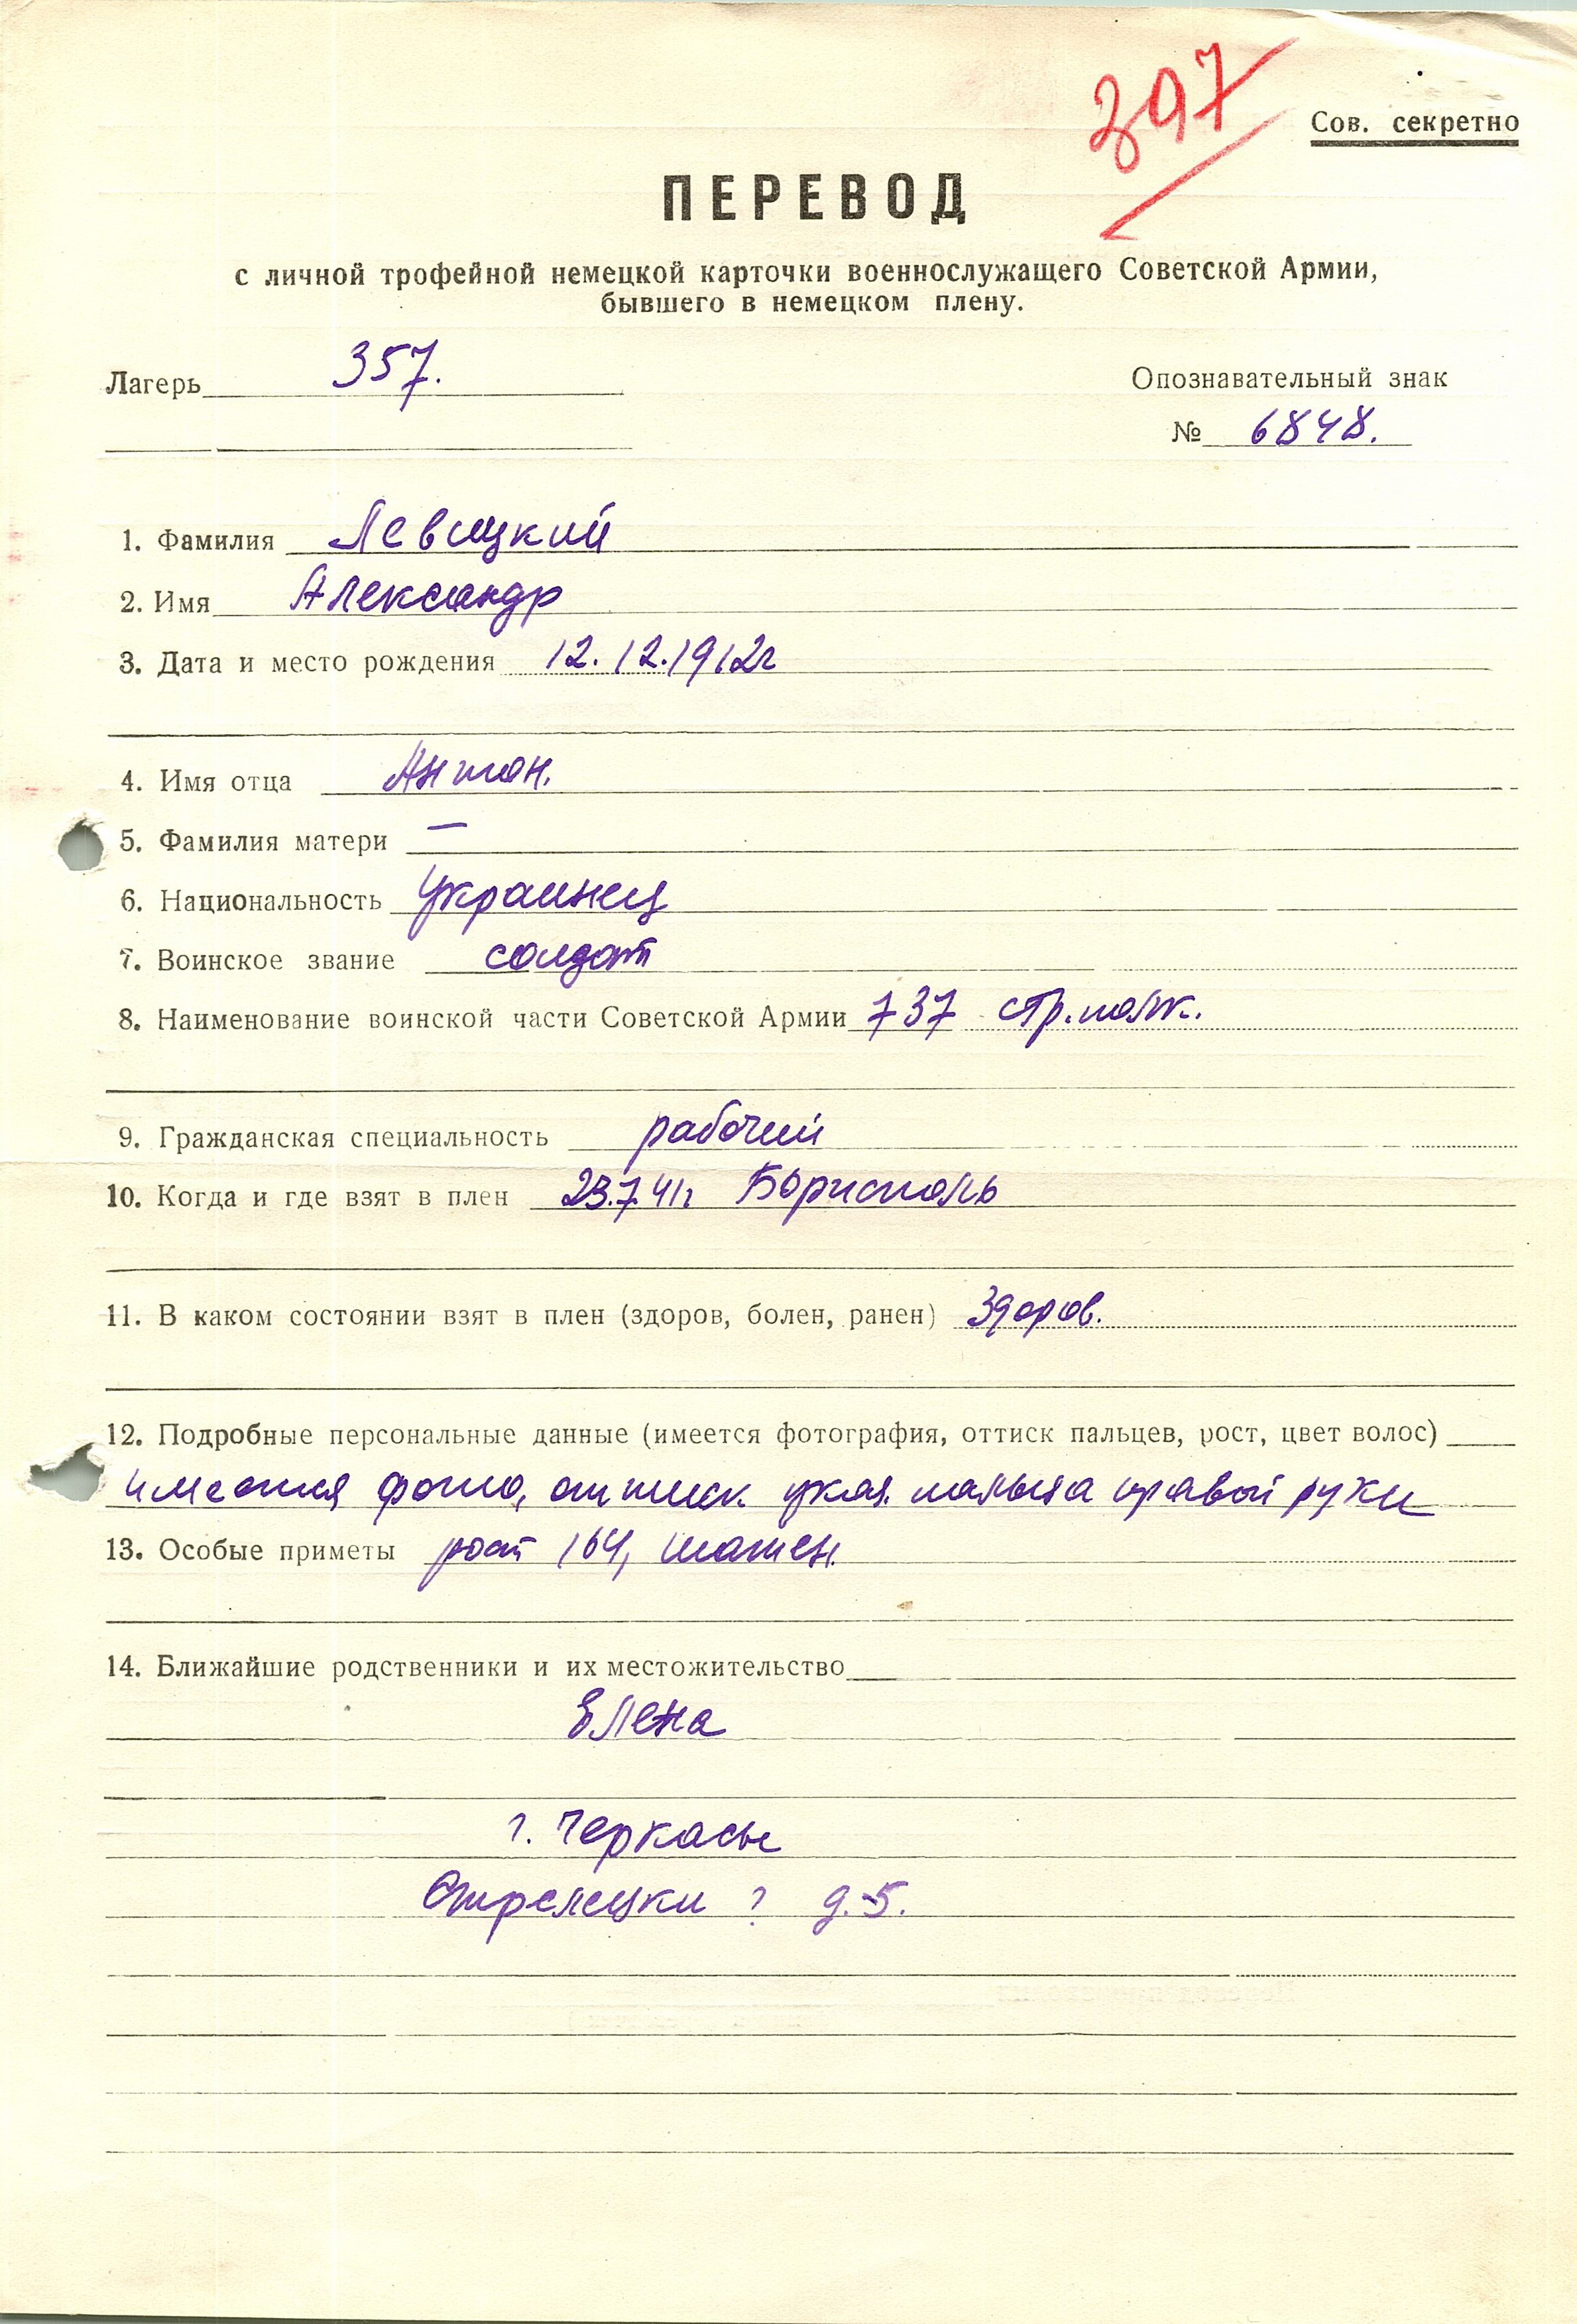 397
Сов. секретно
ПЕРЕВОД
с личной трофейной немецкой карточки военнослужащего Советской Армии,
бывшего в немецком плену.
Лагерь 357.
Опознавательный знак
№ 6848.
1. Фамилия Левицкий
2. Имя Александр
3. Дата и место рождения 12.12.1912г
4. Имя отца Антон.
5. Фамилия матери —
6. Национальность Украинец
7. Воинское звание солдат
8. Наименование воинской части Советской Армии 737 стр. полк.
9. Гражданская специальность рабочий
10. Когда и где взят в плен 23.7.41г Борисполь
11. В каком состоянии взят в плен (здоров, болен, ранен) Здоров.
12. Подробные персональные данные (имеется фотография, оттиск пальцев, рост, цвет волос)
имеется фото, оттиск указ. пальца правой руки
13. Особые приметы рост 164, шатен.
14. Ближайшие родственники и их местожительство
Елена
г. Черкасы
Стрелецки ? д.5.